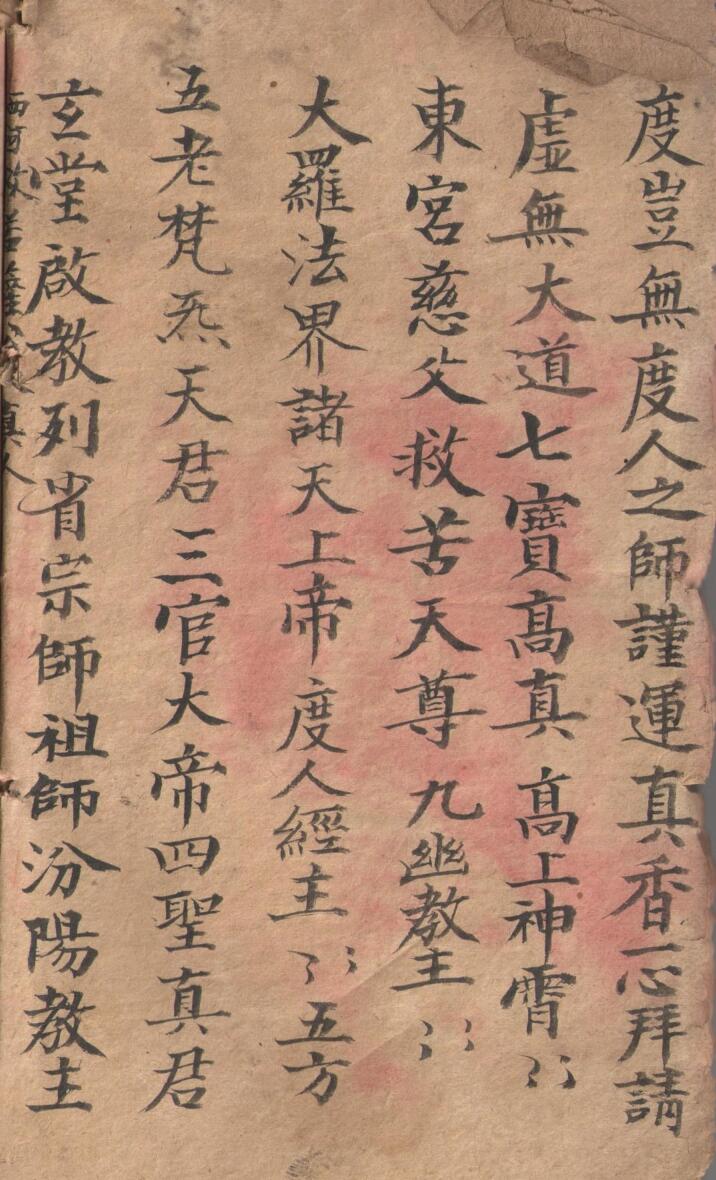 度豈無度人之師謹運真香一心拜請
虛無大道七寶高真高上神霄〻〻
東宮慈父救苦天尊九幽教主〻〻
大羅法界諸天上帝度人經主〻〻五方
五老梵炁天君三官大帝四聖真君
玄堂啟教列省宗師祖師汾陽教主
西河救苦薩 真人